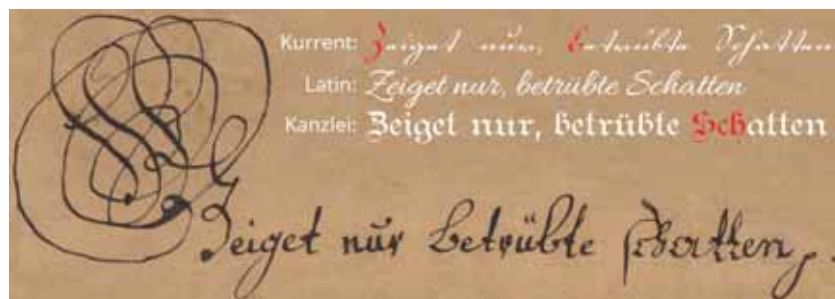 Kurrent: Zeiget nur, betrübte Schatten
Latin: Zeiget nur, betrübte Schatten
Kanzlei: Zeiget nur, betrübte Schatten
Zeiget nur betrübte schatten,